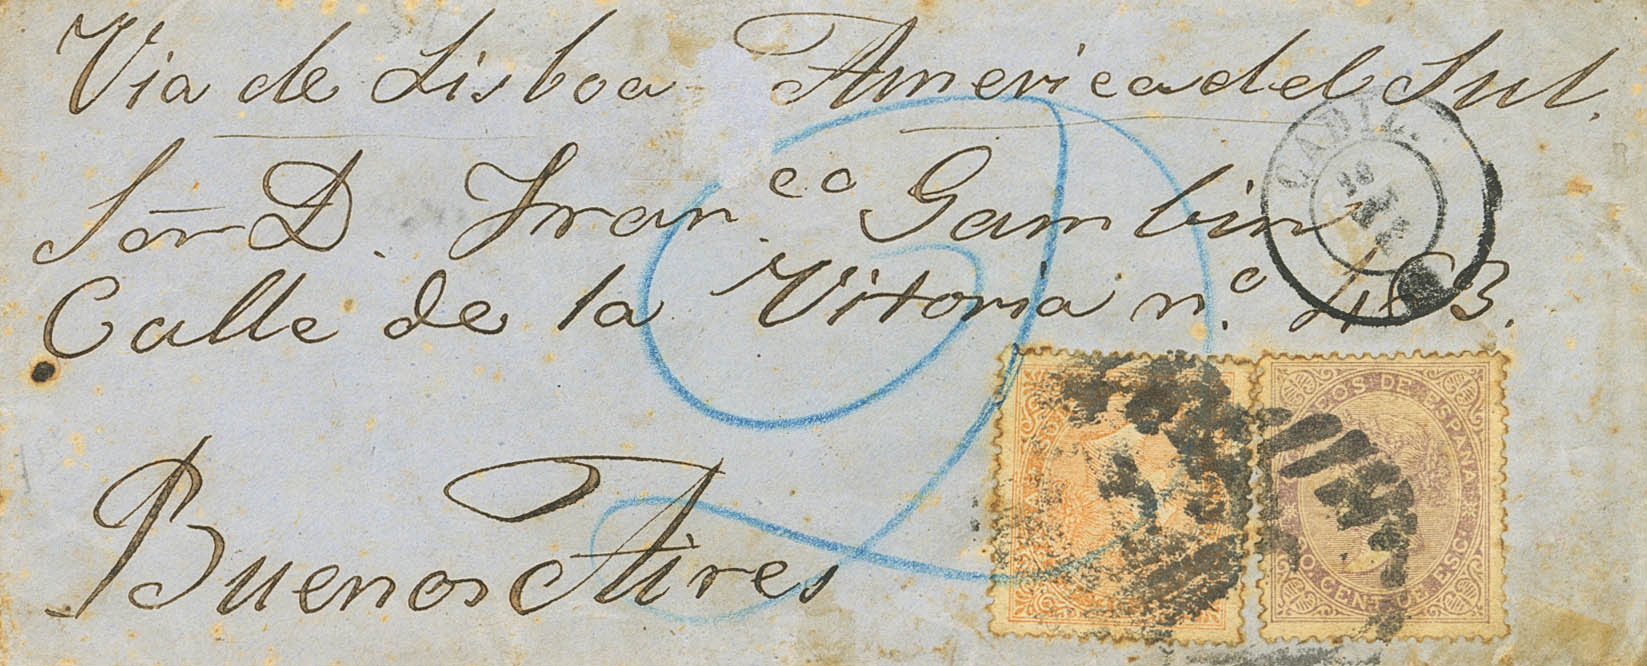 Via de Lisboa America del Sul.
Sor D. Fran.co Gambin
Calle de la Vitoria n.o
Buenos Aires
CADIZ.
CENT. DE ESC.
DE ESPAÑA